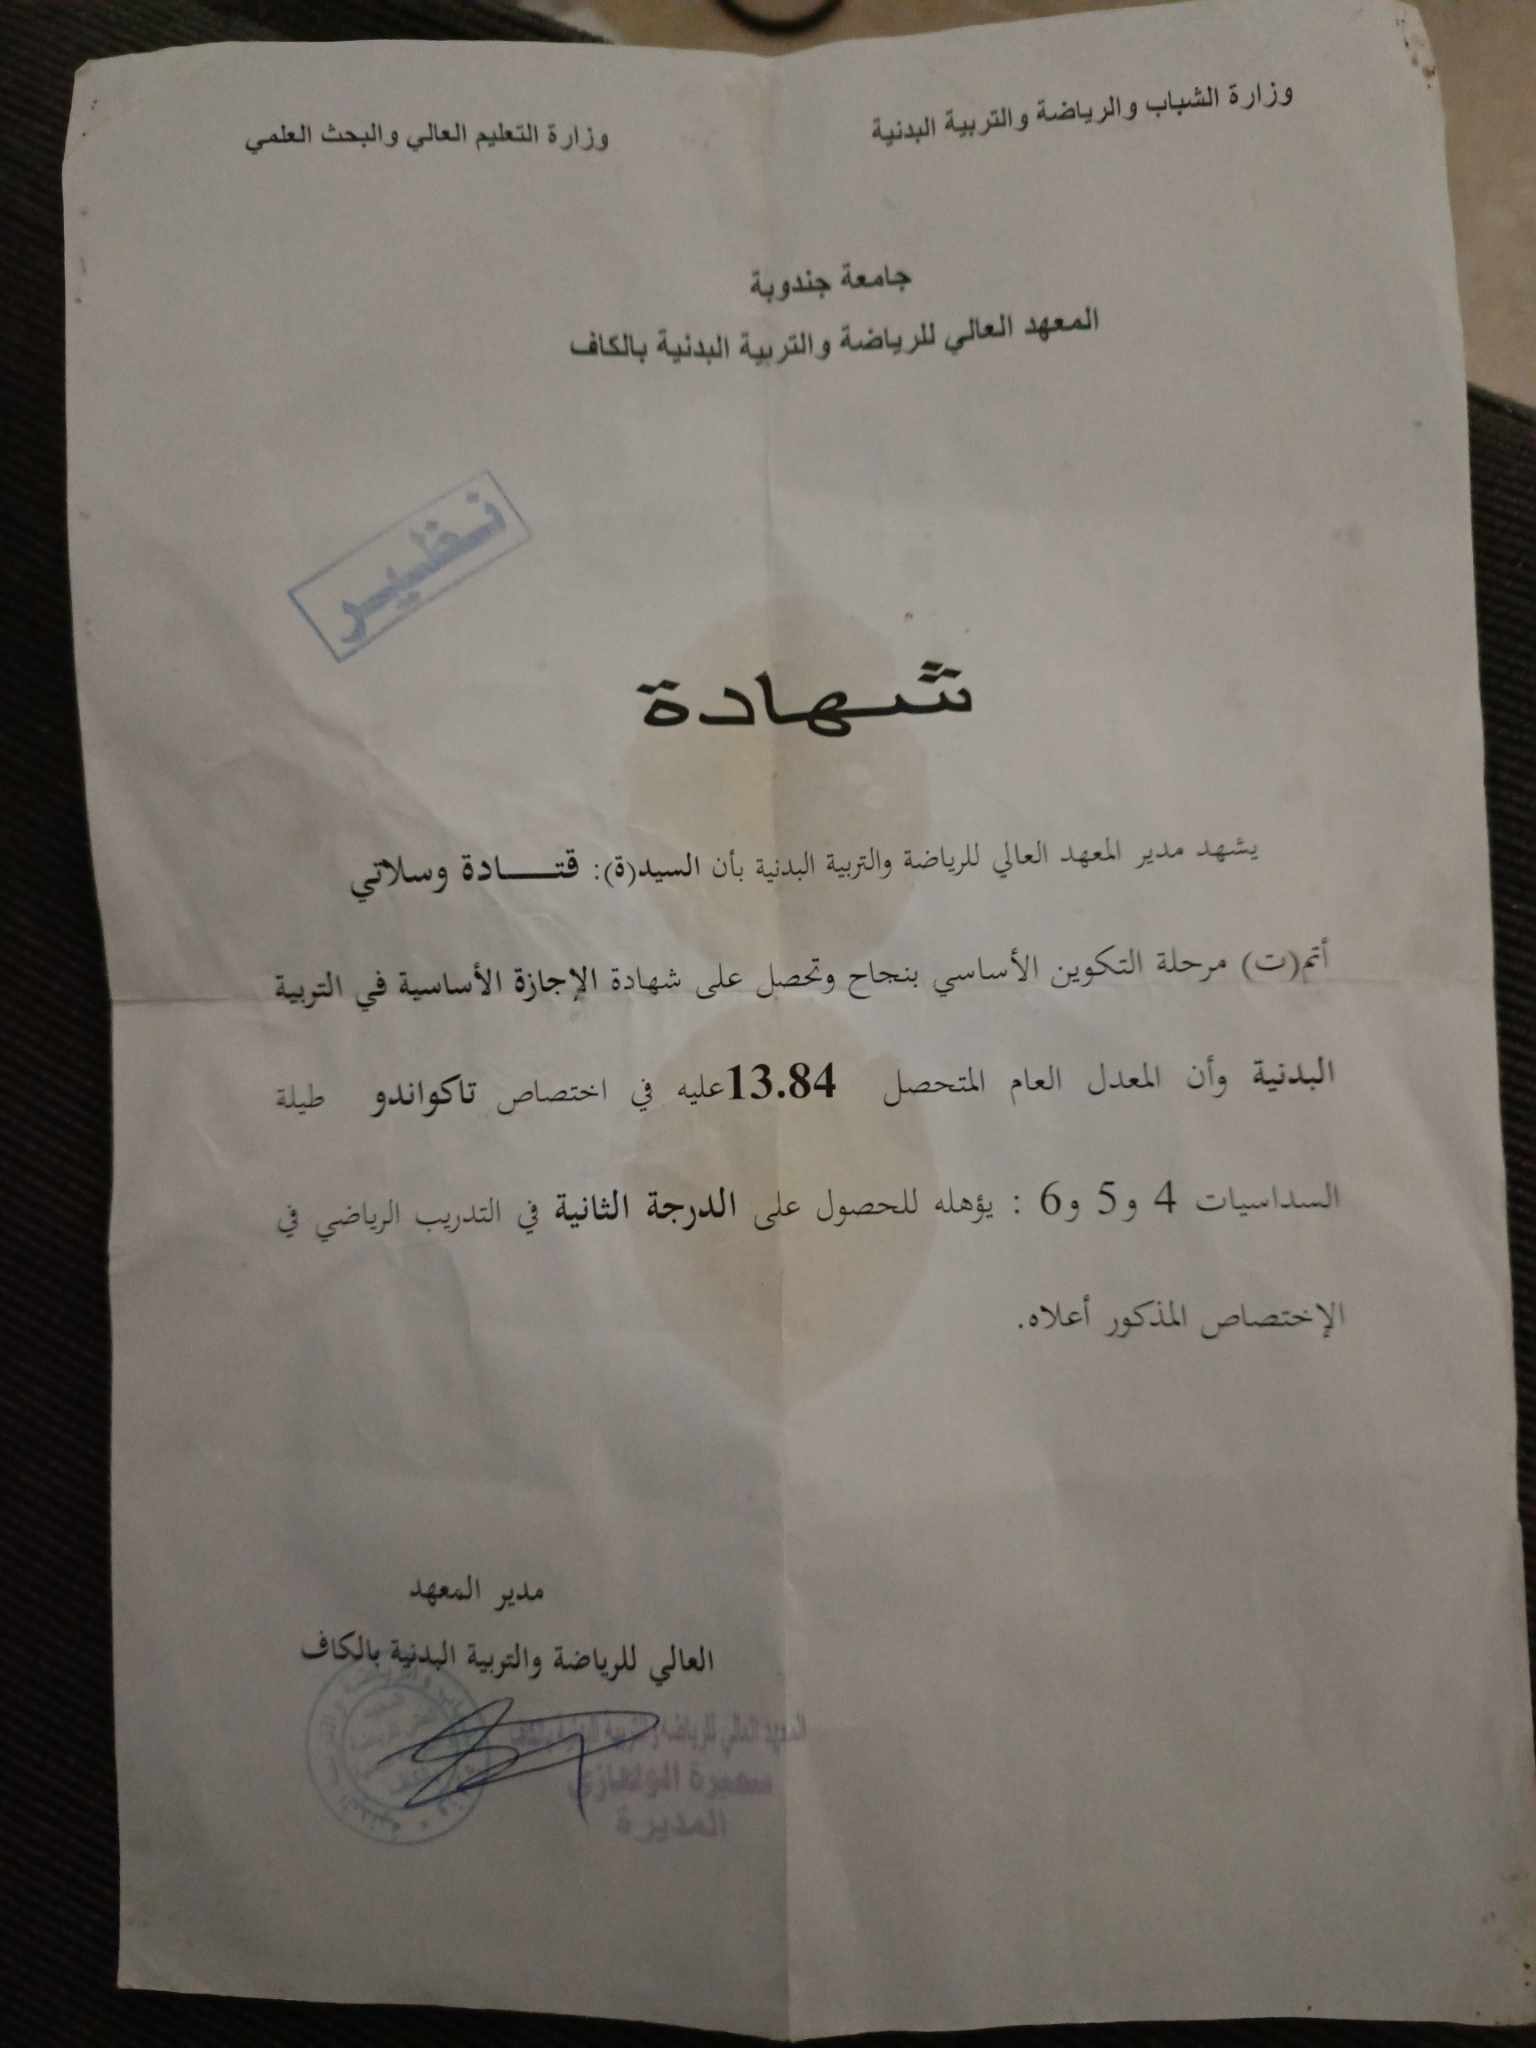 وزارة الشباب والرياضة والتربية البدنية
وزارة التعليم العالي والبحث العلمي
جامعة جندوبة
المعهد العالي للرياضة والتربية البدنية بالكاف
نظير
شهادة
يشهد مدير المعهد العالي للرياضة والتربية البدنية بأن السيد(ة): قتـــادة وسلاتي
أتم(ت) مرحلة التكوين الأساسي بنجاح وتحصل على شهادة الإجازة الأساسية في التربية
البدنية وأن المعدل العام المتحصل 13.84عليه في اختصاص تاكواندو طيلة
السداسيات 4 و5 و6 : يؤهله للحصول على الدرجة الثانية في التدريب الرياضي في
الإختصاص المذكور أعلاه.
مدير المعهد
العالي للرياضة والتربية البدنية بالكاف
المعهد العالي للرياضة والتربية البدنية بالكاف
سميرة
المديرة